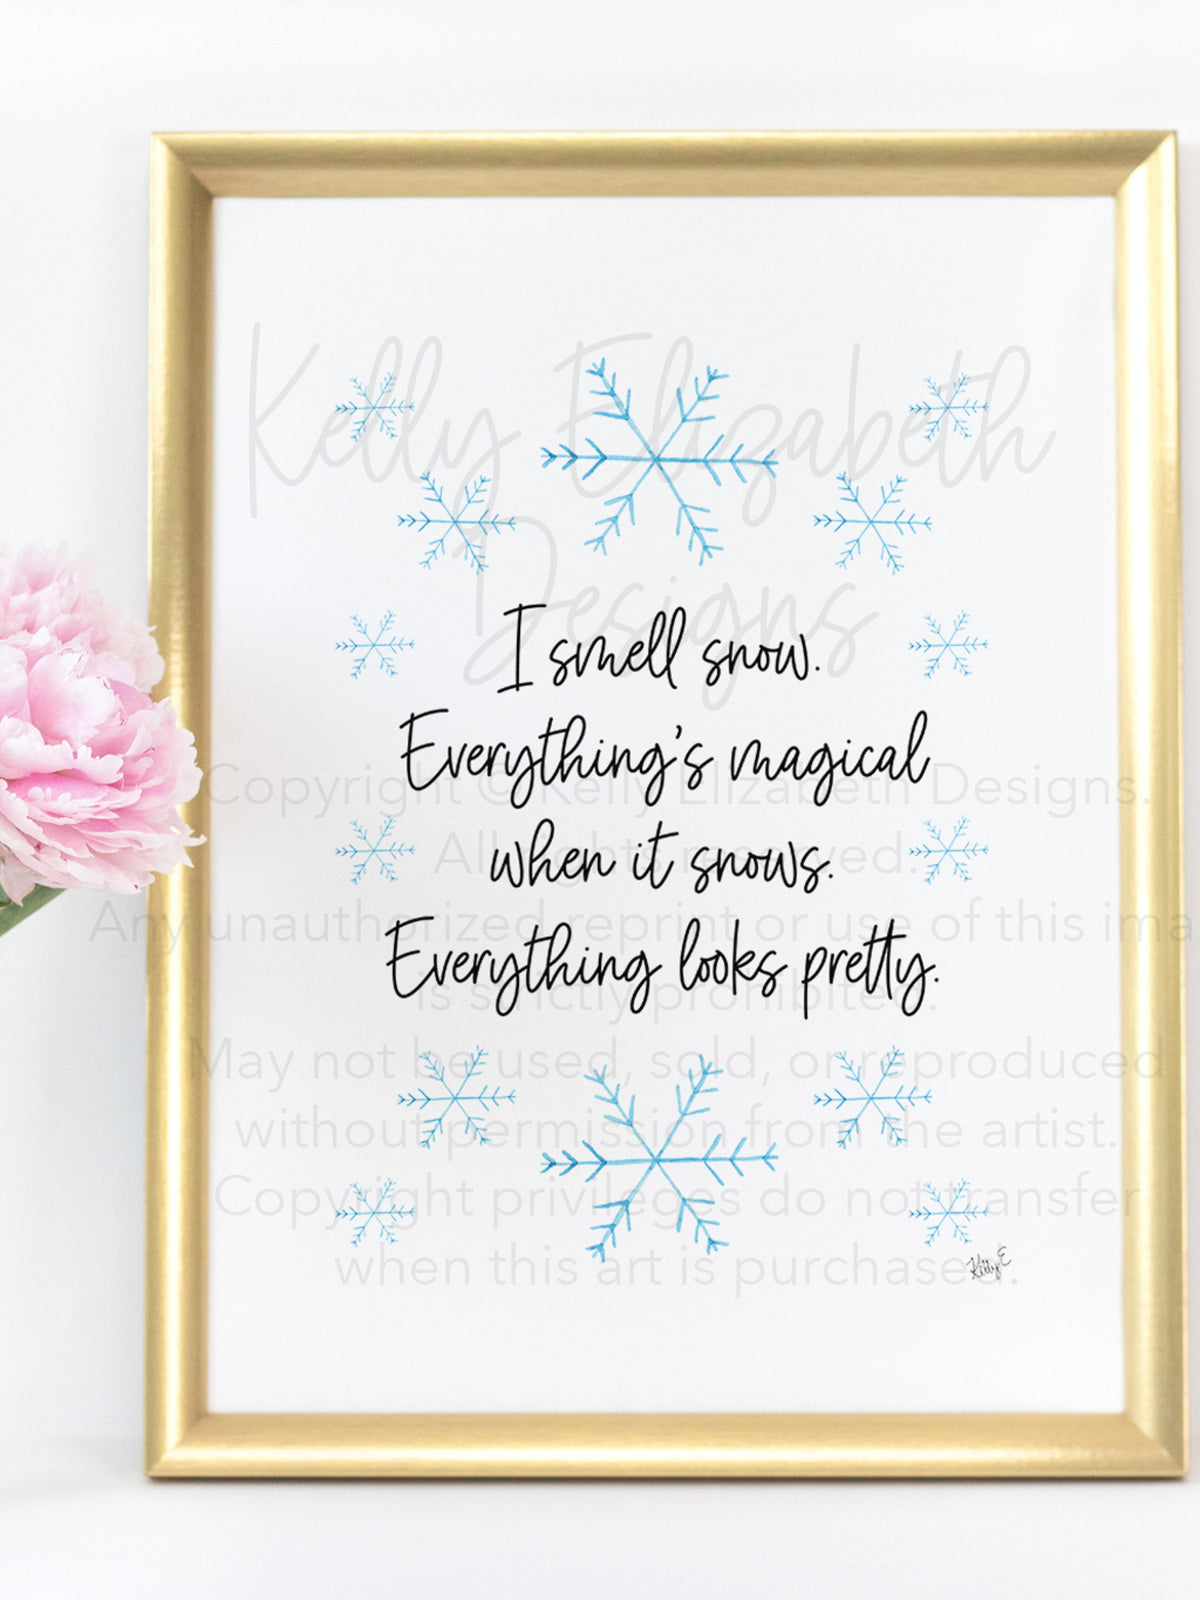 Kelly Elizabeth
Designs
I smell snow.
Copyright © Kelly Elizabeth Designs.
Everything's magical
All rights reserved.
when it snows.
Any unauthorized reprint or use of this ima
Everything looks pretty.
is strictly prohibited.
May not be used, sold, or reproduced
without permission from the artist.
Copyright privileges do not transfer
when this art is purchased.
Kelly E